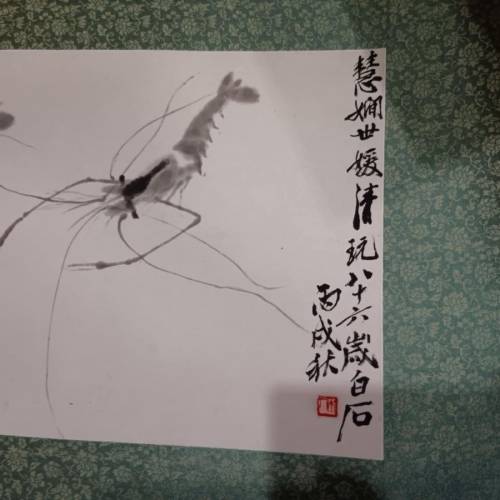 慧娴世媛清玩八十六岁白石
丙戌秋